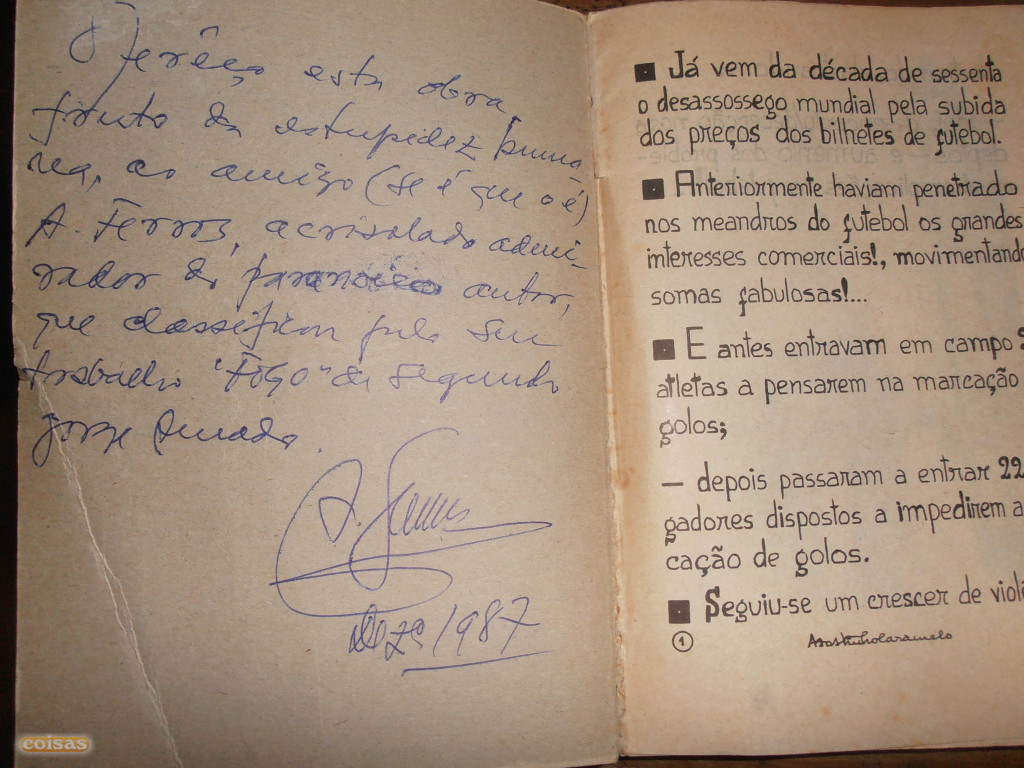 Ofereço esta obra,
fruto da estupidez huma-
na, ao amigo (se é que o é)
A. Ferros, acrisolado admi-
rador do paranoico autor,
que classificou pelo seu
trabalho "Fogo" de segundo
Jorge Amado.
A.
Dezº 1987
■ Já vem da década de sessenta
o desassossego mundial pela subida
dos preços dos bilhetes de futebol.
■ Anteriormente haviam penetrado
nos meandros do futebol os grandes
interesses comerciais!, movimentando
somas fabulosas!...
■ E antes entravam em campo
atletas a pensarem na marcação
golos;
— depois passaram a entrar 22
gadores dispostos a impedirem a
cação de golos.
■ Seguiu-se um crescer de viol
1
coisas